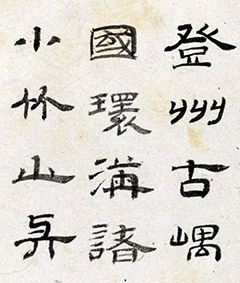 登州古嵎
國環海諸
小竹山與